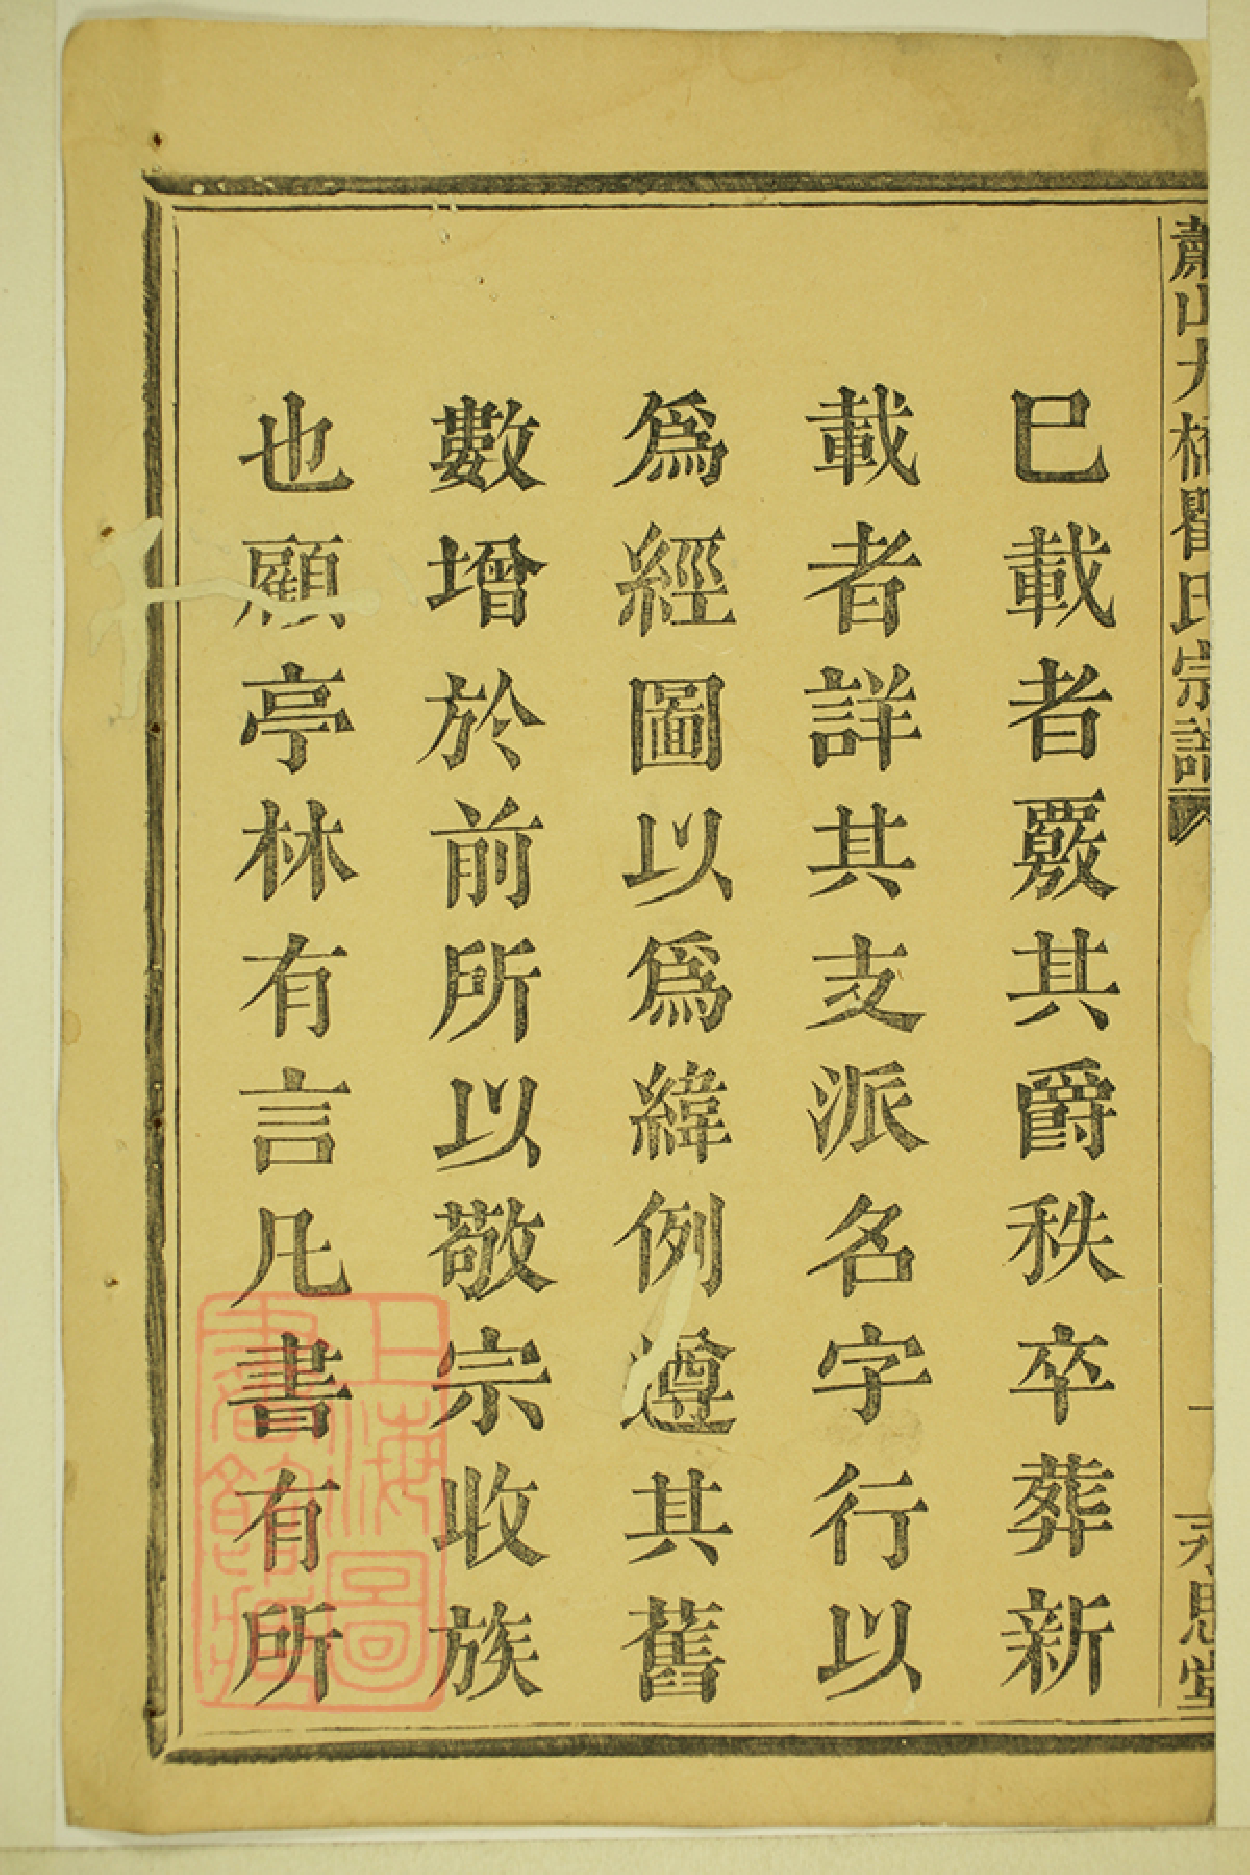 蕭山大橋瞿氏宗譜
永思堂
巳載者覈其爵秩卒葬新
載者詳其支派名字行以
爲經圖以爲緯例遵其舊
數增於前所以敬宗收族
也顧亭林有言凡書有所
上海圖
書館藏